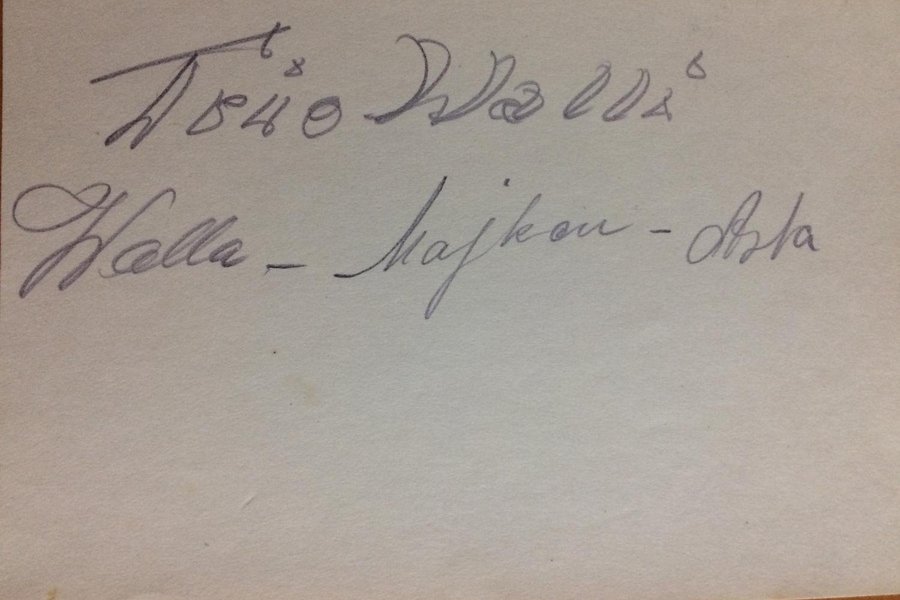 Trio Walli
Walla - Majkon - Asta